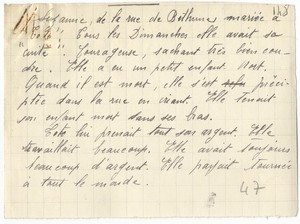 148
Suzanne, de la rue de Béthune mariée à
"Toto". Tous les Dimanches elle avait sa
"cuite". Courageuse, sachant très bien cou-
dre. Elle a eu un petit enfant mort.
Quand il est mort, elle s'est préci-
pitée dans la rue en criant. Elle tenait
son enfant mort dans ses bras.
Toto lui prenait tout son argent. Elle
travaillait beaucoup. Elle avait toujours
beaucoup d'argent. Elle payait tournée
à tout le monde.
47